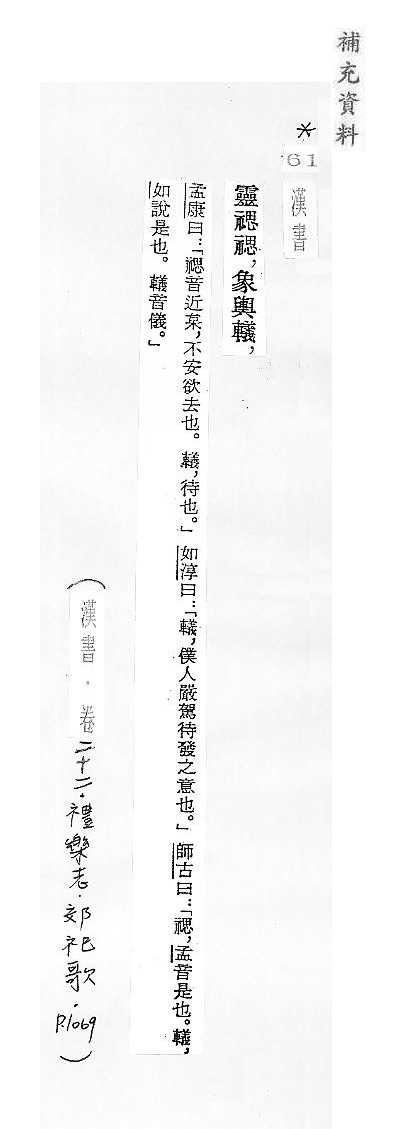 補充資料
*
61
漢書
靈禗禗,象輿轙,
孟康曰:「禗音近枲,不安欲去也。轙,待也。」如淳曰:「轙,僕人嚴駕待發之意也。」師古曰:「禗,孟音是也。轙,
如說是也。轙音儀。」
(漢書·卷二十二·禮樂志·郊祀歌·P.1069)